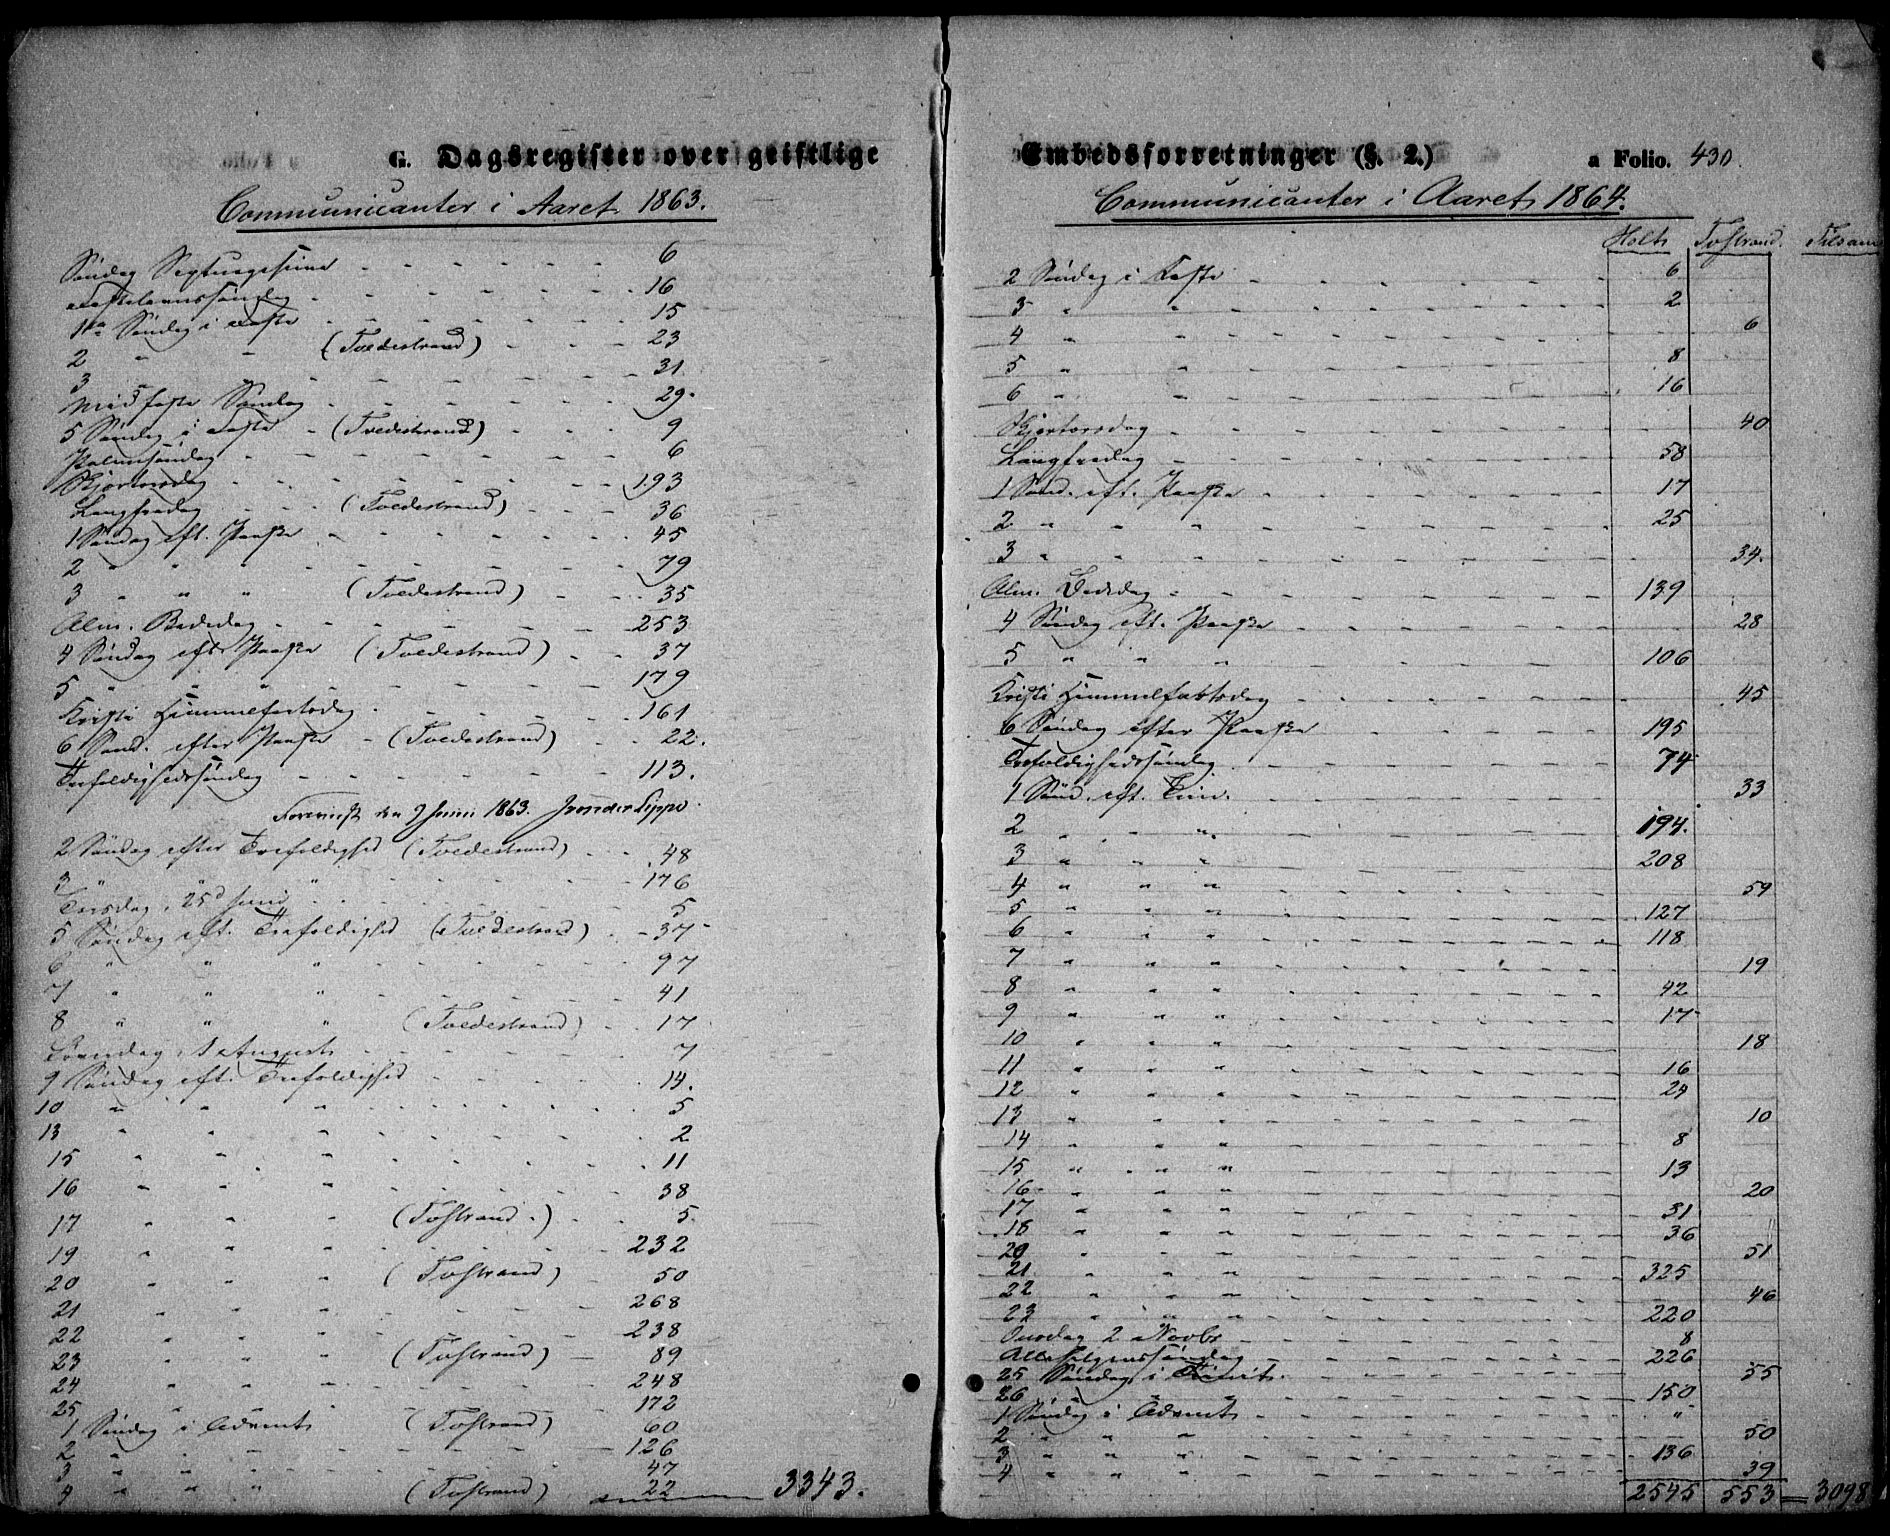 G. Dagsregister over geistlige
Communicanter i Aaret 1863.
Søndag Septuagesima - - - 6
Fastelavnssøndag - - - 16
1ste Søndag i Faste - - - 15
2 " " (Tvedestrand) - - - 23
3 " " - - - 31
Midfaste Søndag - - - 29.
5 Søndag i Faste - (Tvedestrand) - - 9
Palmesøndag - - - 6
Skjærtorsdag - - - 193
Langfredag - - (Tvedestrand) - - - 36
1 Søndag eft. Paaske - - - 45
2 " " " - - - 79
3 " " " (Tvedestrand) - - - 35
Alm. Bededag - - - 253
4 Søndag efter Paaske (Tvedestrand) - - 37
5 " " " - - - 179
Kristi Himmelfartsdag - - - 161
6 Sønd. efter Paaske - (Tvedestrand) - - 22.
Trefoldighedssøndag - - - 113.
Foreviist den 9 Juni 1863. J von der Lippe.
2 Søndag efter Trefoldighed (Tvedestrand) - - 48
3 " " " - - - 176
Torsdag, 25d Juni - - - 5
5 Søndag eft. Trefoldighed (Tvedestrand) - 37
6 " " " - - - 97
7 " " " - - - 41
8 " " " (Tvedestrand) - - 17
Søndag, 1 August - - - 7
9 Søndag eft. Trefoldighed - - - 14.
10 " " " - - - 5
13 " " " - - - 2
15 " " " - - - 11
16 " " " - - - 38
17 " " " (Tvstrand.) - - 5
19 " " " - - - 232
20 " " " (Tvstrand) - 50
21 " " " - - - 268
22 " " " - - - 238
23 " " " (Tvstrand) - 89
24 " " " - - - 248
25 " " " - - - 172
1 Søndag i Advent (Tvstrand) 60
2 " " " - - - 126
3 " " " - - - 47
4 " " " (Tvstrand) 22 3343.
Embedsforretninger (§. 2.) a Folio. 430.
Communicanter i Aaret 1864.
Holt Tvstrand. Tilsam
2 Søndag i Faste - - - 6
3 " " - - - 2
4 " " - - - 6
5 " " - - - 8
6 " " - - - 16
Skjærtorsdag - - - 40
Langfredag - - - 58
1 Sønd. eft. Paaske - - - 17
2 " " " - - - 25
3 " " " - - - 34.
Alm. Bededag - - - 139
4 Søndag eft. Paaske - - - 28
5 " " " - - - 106
Kristi Himmelfartsdag - - - 45
6 Søndag efter Paaske - - - 195
Trefoldighedssøndag - - - 74
1 Sønd. eft. Trin. - - - 33
2 " " " - - - 194.
3 " " " - - - 208
4 " " " - - - 59
5 " " " - - - 127
6 " " " - - - 118
7 " " " - - - 19
8 " " " - - - 42
9 " " " - - - 17
10 " " " - - - 18
11 " " " - - - 16
12 " " " - - - 24
13 " " " - - - 10
14 " " " - - - 8
15 " " " - - - 13
16 " " " - - - 20
17 " " " - - - 31
18 " " " - - - 36
20 " " " - - - 51
21. " " " - - - 325
22 " " " - - - 46
23 " " " - - - 220
Onsdag 2 Novbr - - - 8
Allehelgenssøndag - - - 226
25 Søndag i - - - 55
26 " - - - 150
1 Søndag i Advent - - - "
2 " " " - - - 50
3 " " " - - - 136
4 " " " - - - 39
2545 553 = 3098